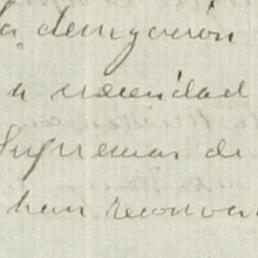 la denegación
a necesidad
Supremas de
han reconoci